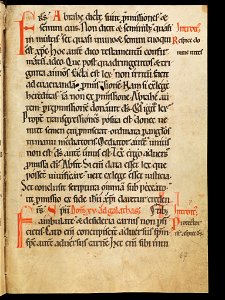 Frs. Abrahe dicte sunt promissiones &
semini eius. Non dicit & seminibus quasi
in multis set quasi in uno & semini tuo qui
est xpc. Hoc autem dico testamentum confir
matum a deo. Que post quadringentos & tri
ginta annos facta est lex non irritum facit
ad euacuandam promissionem. Nam si ex lege
hereditas iam non ex promissione. Abrahe au
tem per promissionem donauit deus. Quid igitur lex
Propter transgressiones posita est donec ue
niret semen cui promiserat ordinata per anglos
in manu mediatoris. Mediator autem unius
non est deus autem unus est. Lex ergo aduersus
promissa dei Absit. Si enim data esset lex que
posset uiuificare uere ex lege esset iusticia.
Set conclusit scriptura omnia sub peccato
ut promissio ex fide ihu xpi daretur credentibus.
Frs. Spu
ambulate & desideria carnis non per
ficietis. Caro enim concupiscit aduersus spm
spc autem aduersus carnem. Hec enim sibi inui
Introitus
Respice do
Introitus
Protector
67